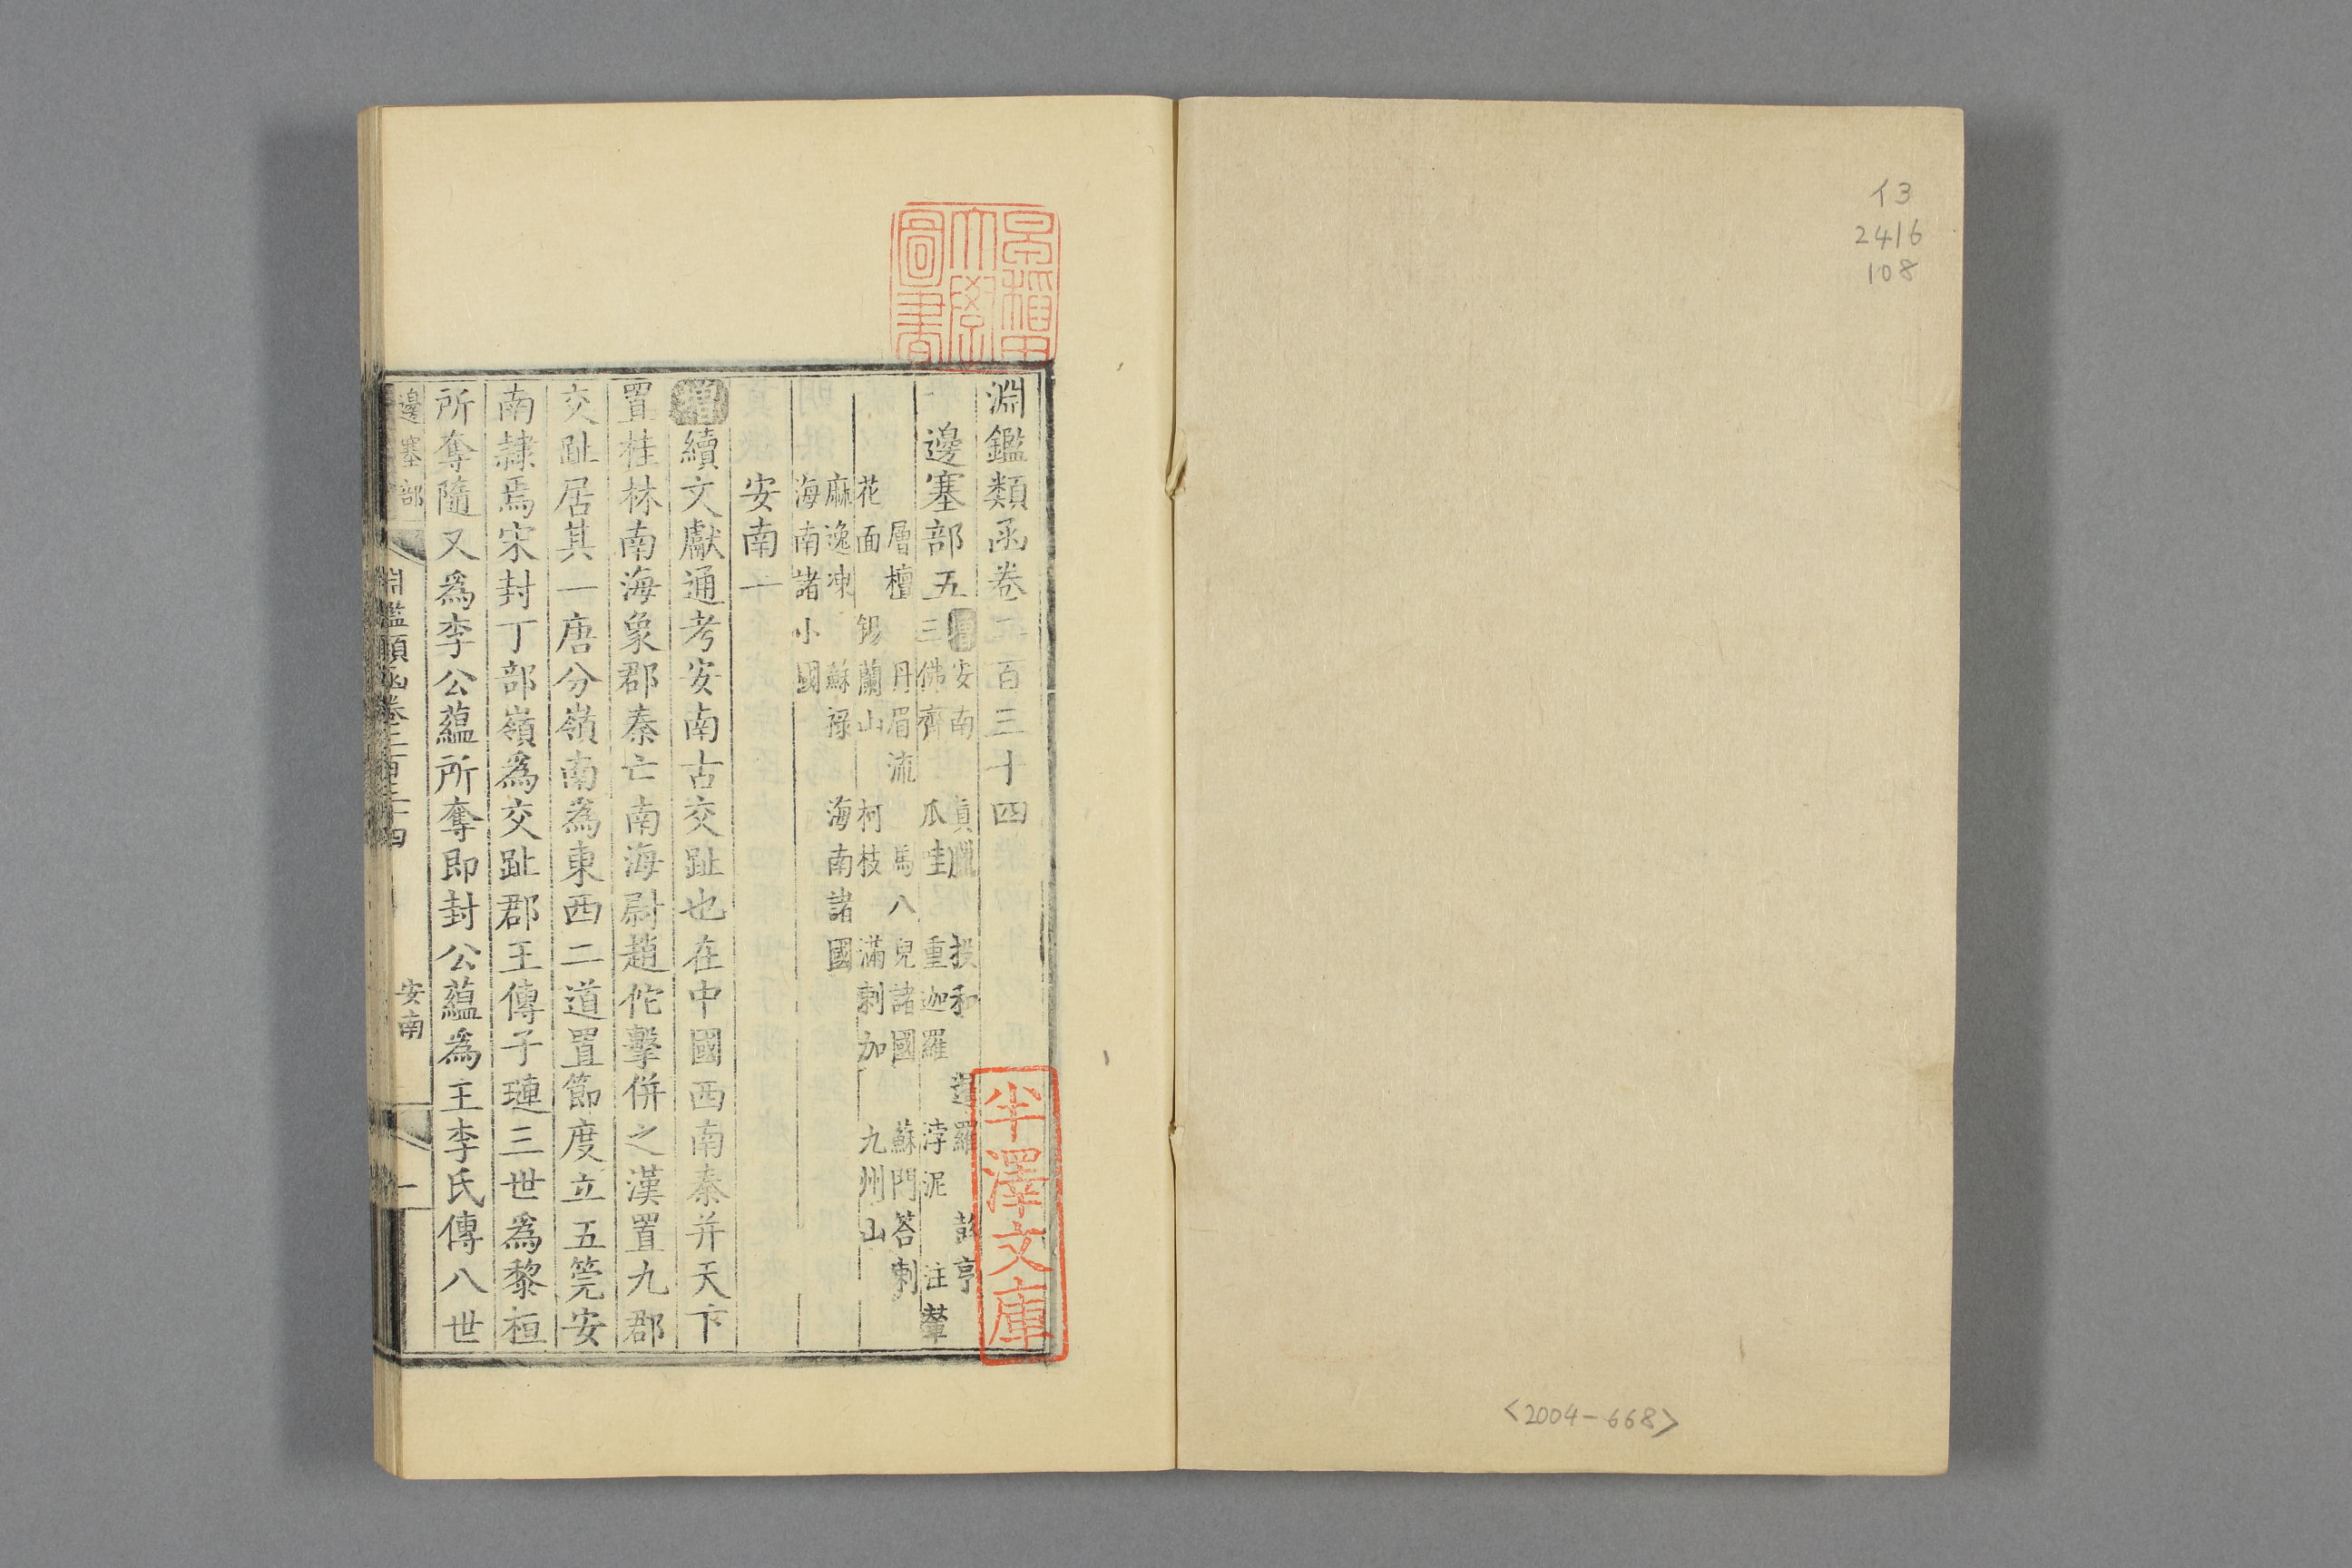 イ3
2416
108
<2004-668>
早稲田
大學
圖書
淵鑑類函卷二百三十四
邊塞部五
增 安南 真臘 投和 暹羅 彭亨
三佛齊 瓜哇 重迦羅 浡泥 注輦
層檀 丹眉流 馬八兒諸國 蘇門答剌
花面 錫蘭山 柯枝 滿剌加 九州山
麻逸凍 蘇祿 海南諸國
海南諸小國
安南一
增續文獻通考安南古交趾也在中國西南秦并天下
置桂林南海象郡秦亡南海尉趙佗擊併之漢置九郡
交趾居其一唐分嶺南為東西二道置節度立五筦安
南隷焉宋封丁部嶺為交趾郡王傳子璉三世為黎桓
所奪隨又為李公蘊所奪即封公蘊為王李氏傳八世
邊塞部
淵鑑類函卷二百三十四
安南
一
半澤文庫